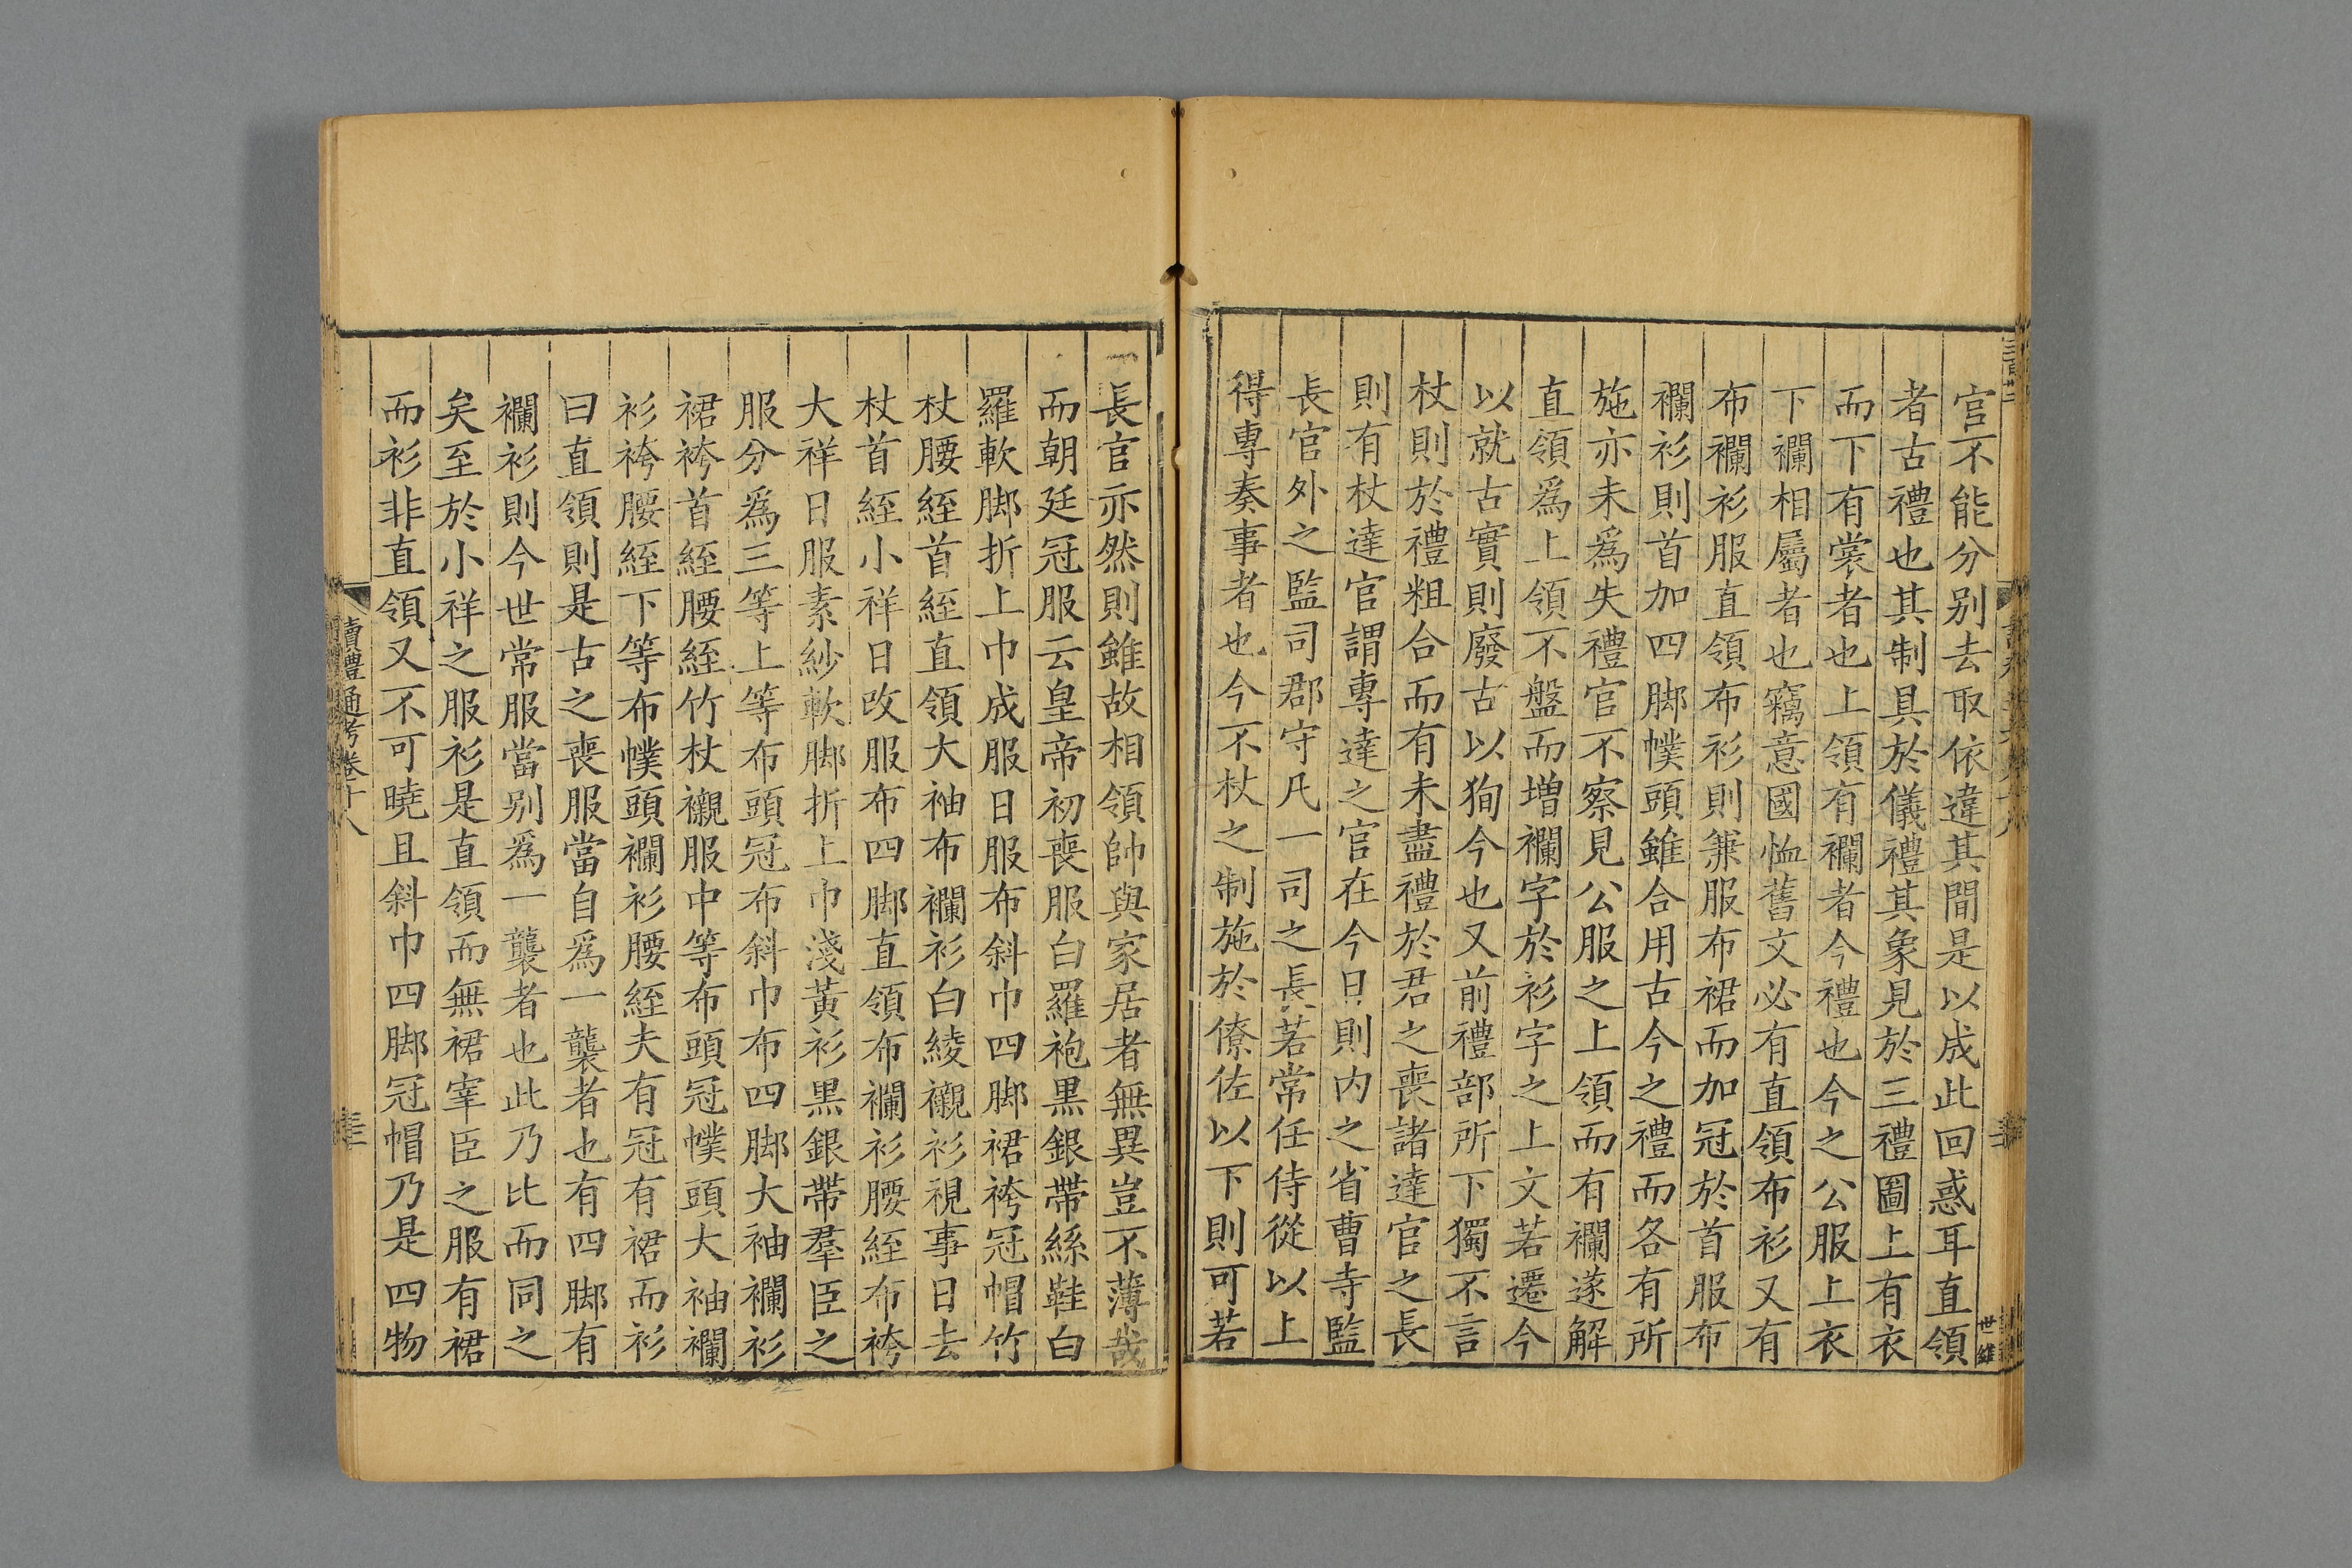 官不能分别去取依違其間是以成此回惑耳直領
者古禮也其制具於儀禮其象見於三禮圖上有衣
而下有裳者也上領有襴者今禮也今之公服上衣
下襴相屬者也竊意國恤舊文必有直領布衫又有
布襴衫服直領布衫則兼服布裙而加冠於首服布
襴衫則首加四脚幞頭雖合用古今之禮而各有所
施亦未爲失禮官不察見公服之上領而有襴遂解
直領爲上領不盤而增襴字於衫字之上文若遷今
以就古實則廢古以狥今也又前禮部所下獨不言
杖則於禮粗合而有未盡禮於君之喪諸達官之長
則有杖達官謂專達之官在今日則内之省曹寺監
長官外之監司郡守凡一司之長若常任侍從以上
得專奏事者也今不杖之制施於僚佐以下則可若
長官亦然則雖故相領帥與家居者無異豈不薄哉
而朝廷冠服云皇帝初喪服白羅袍黑銀帶絲鞋白
羅軟脚折上巾成服日服布斜巾四脚裙袴冠帽竹
杖腰絰首絰直領大袖布襴衫白綾襯衫視事日去
杖首絰小祥日改服布四脚直領布襴衫腰絰布袴
大祥日服素紗軟脚折上巾淺黃衫黑銀帶羣臣之
服分爲三等上等布頭冠布斜巾布四脚大袖襴衫
裙袴首絰腰絰竹杖襯服中等布頭冠幞頭大袖襴
衫袴腰絰下等布幞頭襴衫腰絰夫有冠有裙而衫
曰直領則是古之喪服當自爲一襲者也有四脚有
襴衫則今世常服當别爲一襲者也此乃比而同之
矣至於小祥之服衫是直領而無裙宰臣之服有裙
而衫非直領又不可曉且斜巾四脚冠帽乃是四物
讀禮通考卷十八